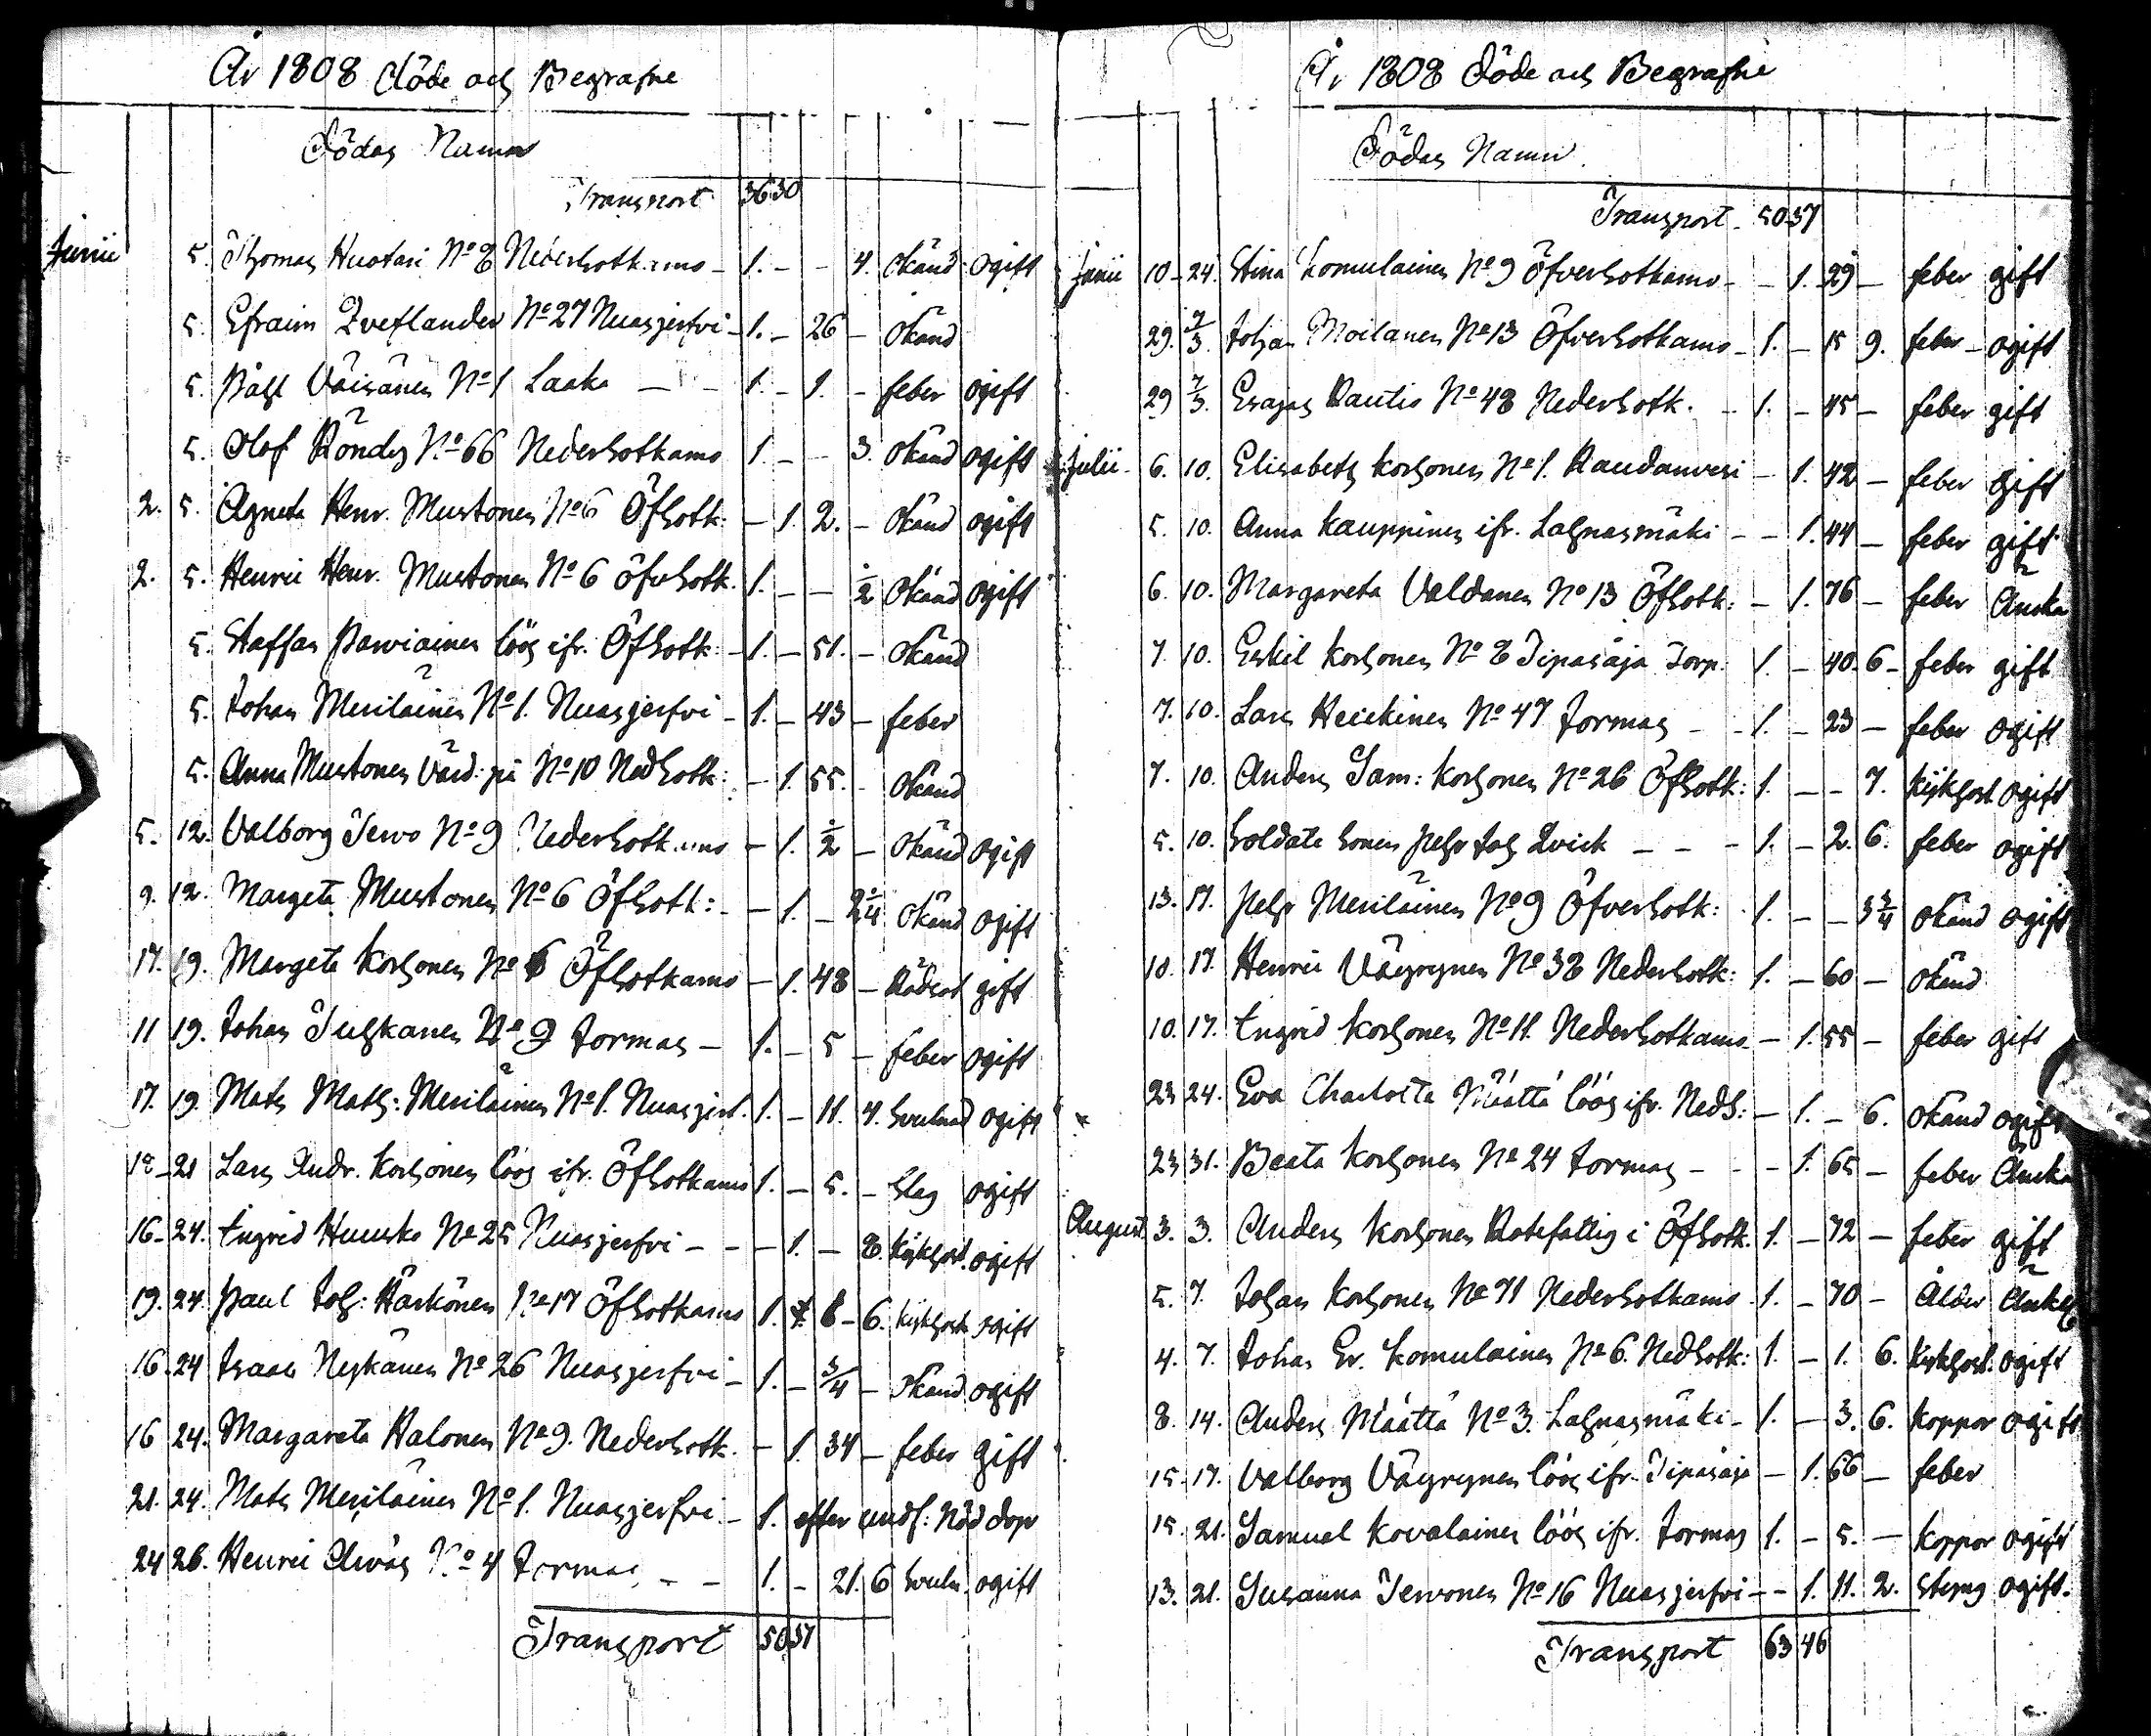 År 1808 Döde och Begrafne
Dödas Namn
Transport 36 30
Junii 5. Thomas Huotari No 8 Nederhotkamo - 1. - - 4. Okänd ogift
5. Efraim Zvetlander No 27 Nuasjerfvi - 1. - 26 - Okänd
5. Påhl Väisänen No 1 Laaka - - 1. - 1. - feber ogift
5. Olof Röndy No 66 Nederhotkamo 1. - - 3. Okänd ogift
2. 5. Agneta Henr. Mustonen No 6 Öfhotk: - 1. 2. - Okänd ogift
2. 5. Henric Henr. Mustonen No 6 Öfvhotk. 1. - - 1/2 Okänd ogift
5. Staffan Parviainen löös ifr. Öfhotk: - 1. - 51. - Okänd
5. Johan Meriläinen No 1. Nuasjerfvi - 1. - 43 - feber
5. Anna Mustonen Värd: på No 10 Nedhotk: - 1. 55. - Okänd
5. 12. Valborg Tervo No 9 Nederhotkamo - 1. 1/2 - Okänd ogift
9. 12. Margeta Mustonen No 6 Öfhotk: - - 1. - 2 1/4 Okänd ogift
17. 19. Margeta Korhonen No 6 Öfhotkamo - 1. 48 - Rödsot gift
11 19. Johan Tuhkanen No 9 Jormas - 1. - 5 - feber ogift
17. 19. Mats Math: Meriläinen No 1. Nuasjerf. 1. - 11. 4. ogift
21 Lars Andr. Korhonen löös ifr. Öfhotkamo 1. - 5. - Slag ogift
16 - 24. Ingrid Huusko No 25 Nuasjerfvi - - - 1. - 8. Kikhost. ogift
19. 24 Paul Joh: Härkönen No 17 Öfhotkamo 1. 6 - 6. Kikhost ogift
16. 24 Isaac Neykänen No 26 Nuasjerfvi - 1. - 3/4 - Okänd ogift
16 24. Margareta Halonen No 9. Nederhotk. - 1. 34 - feber gift
21. 24. Mats Meriläinen No 1. Nuasjerfvi - 1. efter undf: Nöd dop
24 26. Henric No 4 Jormas - - 1. - 21. 6 ogift
Transport 50 37
År 1808 Döde och Begrafne
Dödas Namn
Transport 50 37
Junii 10 - 24. Stina Komulainen No 9 Öfverhotkamo - - 1. 29 - feber gift
29. 7/3. Johan Moilanen No 13 Öfverhotkamo - 1. - 15 9. feber - ogift
29 7/3. Esajas Rautio No 48 Nederhotk. - 1. - 45 - feber gift
Julii - 6. 10. Elisabeth Korhonen No 1. Raudanvesi - 1. 42 - feber gift
5. 10. Anna Kauppinen ifr. Lahnasmäki - - 1. 44 - feber gift
6. 10. Margareta Valdanen No 13 Öfhotk: - 1. 76 - feber Ancka
7. 10. Eskil Korhonen No 8 Tipasåja Torp. 1. - 40. 6 - feber gift
7. 10. Lars Heickinen No 47 Jormas - - 1. - 23 - feber ogift
7. 10. Anders Sam: Korhonen No 26 Öfhotk: 1. - - 7. Kikhost ogift
5. 10. Soldate sonen Pehr Joh Qvick - - - 1. - 2. 6. feber ogift
13. 17. Pehr Meriläinen No 9 Öfverhotk: 1. - - 3 3/4 okänd ogift
10. 17. Henric Väyrynen No 38 Nederhotk: 1. - 60 - okänd
10. 17. Ingrid Korhonen No 11. Nederhotkamo - 1. 55 - feber gift
23 24. Eva Charlotta Määttä löös ifr. Nedh: - 1. - 6. Okänd ogift
23 31. Beata Korhonen No 24 Jormas - - - 1. 65 - feber Ancka
August. 3. 3. Anders Korhonen Rotefattig i Öfhotk. 1. - 72 - feber gift
5. 7. Johan Korhonen No 71 Nederhotkamo 1. - 70 - Ålder
4. 7. Johan Er. Komulainen No 6. Nedhotk: 1. - 1. 6. Kikhost. ogift
8. 14. Anders Määttä No 3. Lahnasmäki - 1. - 3. 6. Koppor ogift
15. 17. Valborg Väyrynen löös ifr. Tipasåja - 1. 66 - feber
15. 21. Samuel Kovalainen löös ifr. Jormas 1. - 5. - Koppor ogift
13. 21. Susanna Tervonen No 16 Nuasjerfvi - - 1. 11. 2. Styng ogift.
Transport 63 46